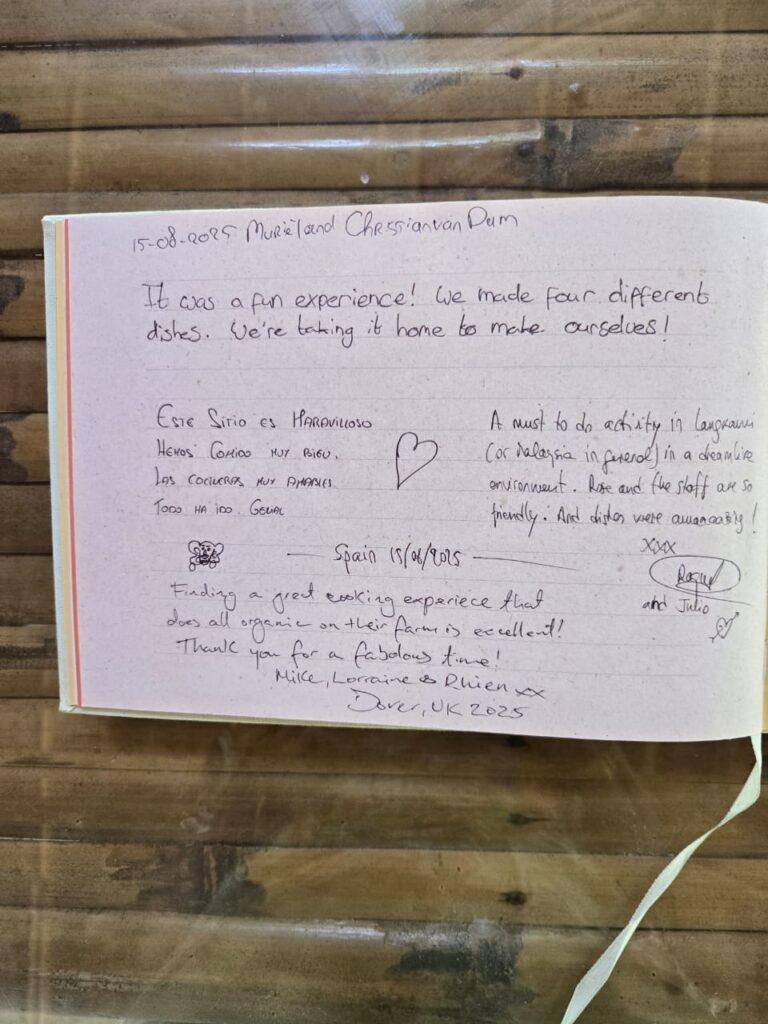 15-08-2025 Muriël and Chrissian van Dam
It was a fun experience! We made four different
dishes. We're taking it home to make ourselves!
ESTE SITIO ES MARAVILLOSO
HEMOS COMIDO MUY BIEN.
LAS COCINERAS MUY AMABLES.
TODO HA IDO GENIAL
A must to do activity in Langkawi
(or Malaysia in general) in a dreamlike
environment. Rose and the staff are so
friendly. And dishes were amaaaazing!
xxx
Raquel
and Julio
Spain 15/08/2025
Finding a great cooking experiece that
does all organic on their farm is excellent!
Thank you for a fabolous time!
Mike, Lorraine & Rhien xx
Dover, UK 2025